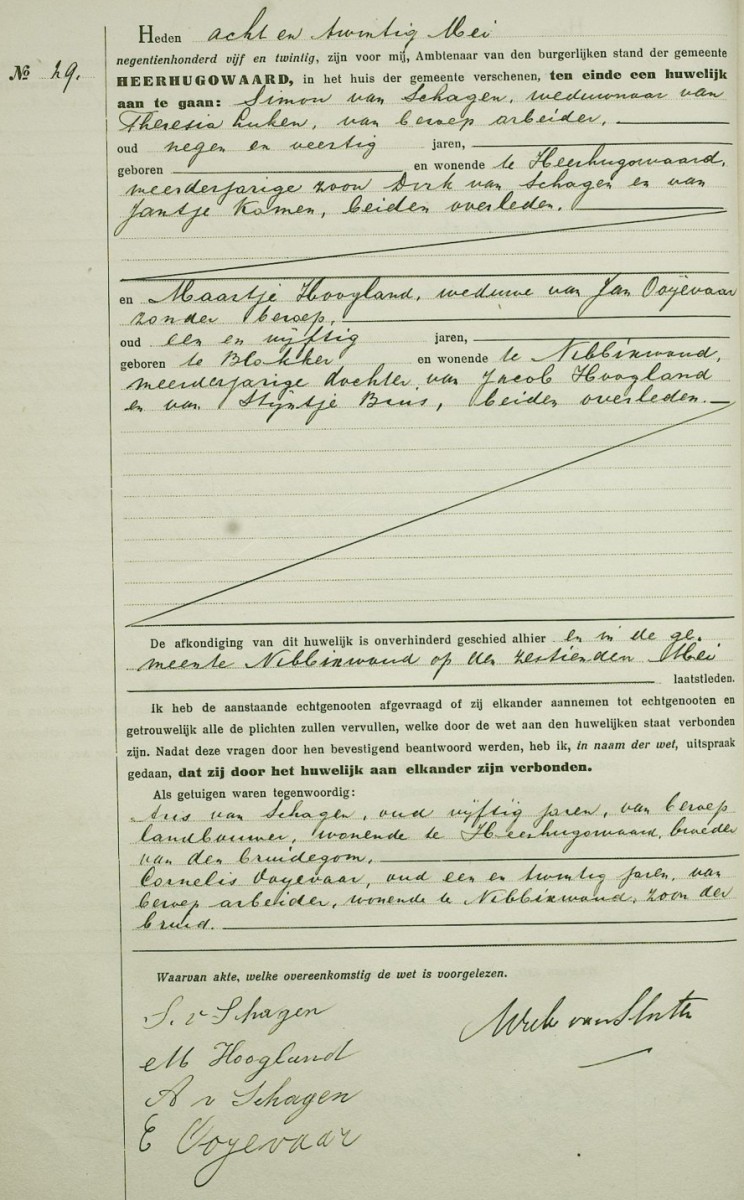 Heden acht en twintig Mei
negentienhonderd vijf en twintig, zijn voor mij, Ambtenaar van den burgerlijken stand der gemeente
No 29.
HEERHUGOWAARD, in het huis der gemeente verschenen, ten einde een huwelijk
aan te gaan: Simon van Schagen, weduwnaar van
Theresia Luken, van beroep arbeider,
oud negen en veertig jaren,
geboren en wonende te Heerhugowaard,
meerderjarige zoon Dirk van Schagen en van
Jantje Komen, beiden overleden.
en Maartje Hoogland, weduwe van Jan Ooijevaar
zonder beroep,
oud een en vijftig jaren,
geboren te Blokker en wonende te Nibbixwoud,
meerderjarige dochter van Jacob Hoogland
en van Stijntje Beus, beiden overleden.
De afkondiging van dit huwelijk is onverhinderd geschied alhier en in de ge-
meente Nibbixwoud op den zestienden Mei
laatstleden.
Ik heb de aanstaande echtgenooten afgevraagd of zij elkander aannemen tot echtgenooten en
getrouwelijk alle de plichten zullen vervullen, welke door de wet aan den huwelijken staat verbonden
zijn. Nadat deze vragen door hen bevestigend beantwoord werden, heb ik, in naam der wet, uitspraak
gedaan, dat zij door het huwelijk aan elkander zijn verbonden.
Als getuigen waren tegenwoordig:
Aris van Schagen, oud vijftig jaren, van beroep
landbouwer, wonende te Heerhugowaard, broeder
van den bruidegom,
Cornelis Ooyevaar, oud een en twintig jaren, van
beroep arbeider, wonende te Nibbixwoud, zoon der
bruid.
Waarvan akte, welke overeenkomstig de wet is voorgelezen.
S. v Schagen
M Hoogland
A v Schagen
C Ooyevaar
van Slooten